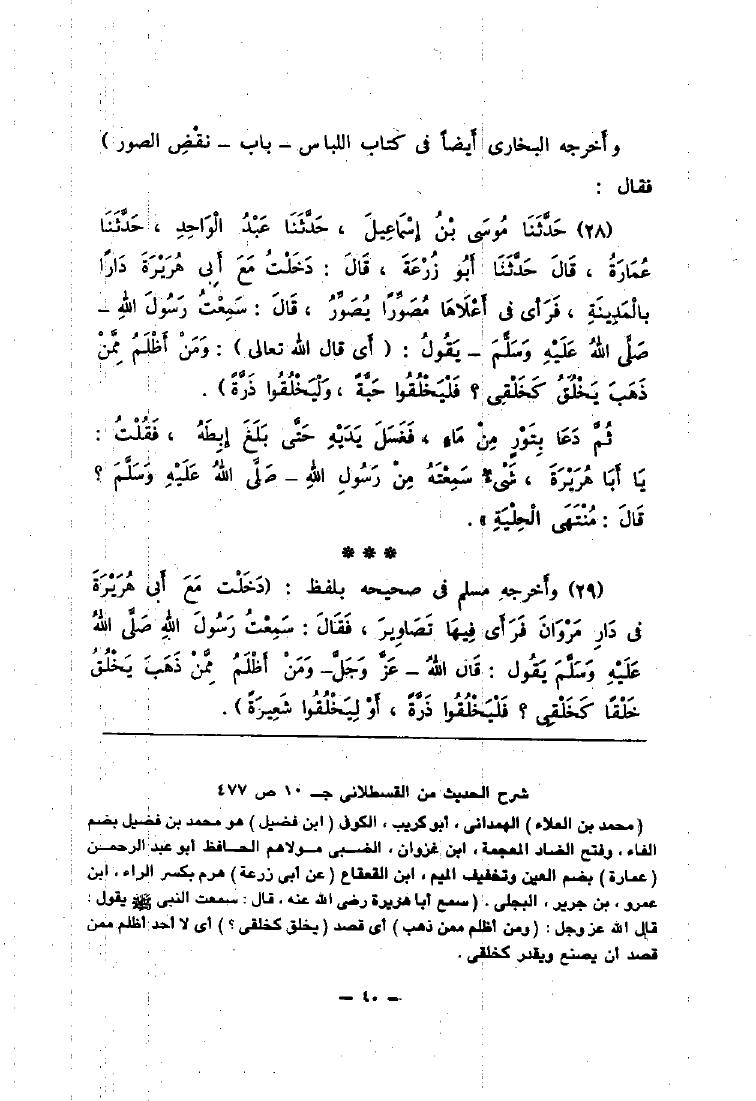 وأخرجه البخارى أيضاً فى كتاب اللباس – باب – نقْضِ الصور )
فقال :
(٢٨) حَدَّثَنَا مُوسَى بْنُ إِسْمَاعِيلَ ، حَدَّثَنَا عَبْدُ الْوَاحِدِ ، حَدَّثَنَا
عُمَارَةُ ، قَالَ حَدَّثَنَا أَبُو زُرْعَةَ ، قَالَ : دَخَلْتُ مَعَ أَبِى هُرَيْرَةَ دَارًا
بِالْمَدِينَةِ ، فَرَأَى فِى أَعْلَاهَا مُصَوِّرًا يُصَوِّرُ ، قَالَ : سَمِعْتُ رَسُولَ اللهِ –
صَلَّى اللهُ عَلَيْهِ وَسَلَّمَ – يَقُولُ : ( أى قال الله تعالى ) : وَمَنْ أَظْلَمُ مِمَّنْ
ذَهَبَ يَخْلُقُ كَخَلْقِى ؟ فَلْيَخْلُقُوا حَبَّةً ، وَلْيَخْلُقُوا ذَرَّةً ) .
ثُمَّ دَعَا بِتَوْرٍ مِنْ مَاءٍ ، فَغَسَلَ يَدَيْهِ حَتَّى بَلَغَ إِبِطَهُ ، فَقُلْتُ :
يَا أَبَا هُرَيْرَةَ ، شَىْءٌ سَمِعْتَهُ مِنْ رَسُولِ اللهِ – صَلَّى اللهُ عَلَيْهِ وَسَلَّمَ ؟
قَالَ : مُنْتَهَى الْحِلْيَةِ » .
* * *
(٢٩) وأخرجه مسلم فى صحيحه بلفظ : (دَخَلْت مَعَ أَبِى هُرَيْرَةَ
فِى دَارِ مَرْوَانَ فَرَأَى فِيهَا تَصَاوِيرَ ، فَقَالَ : سَمِعْتُ رَسُولَ اللهِ صَلَّى اللهُ
عَلَيْهِ وَسَلَّمَ يَقُول : قَال اللهُ – عَزَّ وَجَلَّ– وَمَنْ أَظْلَمُ مِمَّنْ ذَهَبَ يَخْلُقُ
خَلْقًا كَخَلْقِى ؟ فَلْيَخْلُقُوا ذَرَّةً ، أَوْ لِيَخْلُقُوا شَعِيرَةً ) .
شرح الحديث من القسطلانى جـ ١٠ ص ٤٧٧
( محمد بن العلاء ) الهمدانى ، أبو كريب ، الكوفى ( ابن فضيل ) هو محمد بن فضيل بضم
الفاء ، وفتح الضاد المعجمة ، ابن غزوان ، الضبى مولاهم الحافظ أبو عبد الرحمن
( عمارة ) بضم العين وتخفيف الميم ، ابن القعقاع ( عن أبى زرعة ) هرم بكسر الراء ، ابن
عمرو ، بن جرير ، البجلى . ( سمع أبا هريرة رضى الله عنه ، قال : سمعت النبى ﷺ يقول :
قال الله عز وجل : ( ومن أظلم ممن ذهب ) أى قصد ( يخلق كخلقى ؟ ) أى لا أحد أظلم ممن
قصد أن يصنع ويقدر كخلقى .
– ٤٠ –